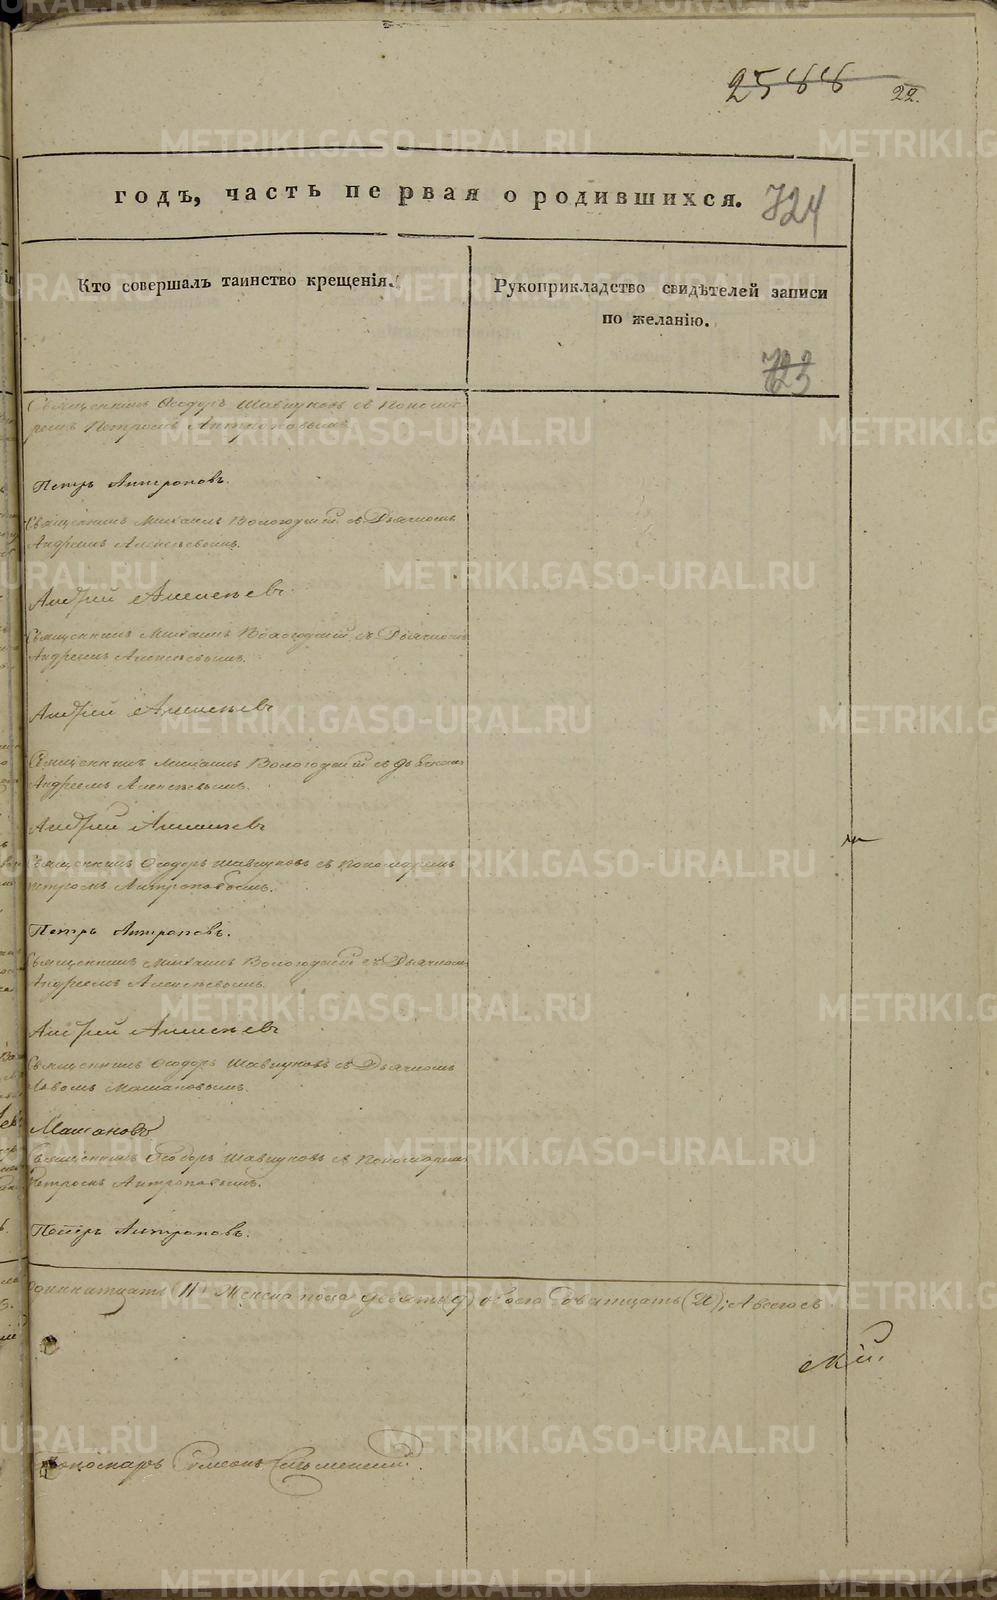 2588
22.
годъ, часть первая о родившихся.
724
Кто совершалъ таинство крещенія.
Рукоприкладство свидѣтелей записи
по желанію.
723
Священникъ Ѳеодоръ Шавкуновъ съ Понома-
ремъ Петромъ Антроповымъ.
Петръ Антроповъ.
Священникъ Михаилъ Вологодскій съ Дьячкомъ
Андреемъ Алексѣевымъ.
Андрей Алексѣевъ
Священникъ Михаилъ Вологодскій съ Дьячкомъ
Андреемъ Алексѣевымъ.
Андрей Алексѣевъ
Священникъ Михаилъ Вологодскій съ дьячкомъ
Андреемъ Алексѣевымъ.
Андрей Алексѣевъ
Священникъ Ѳеодоръ Шавкуновъ съ Пономаремъ
Петромъ Антроповымъ.
Петръ Антроповъ.
Священникъ Михаилъ Вологодскій съ Дьячкомъ
Андреемъ Алексѣевымъ.
Андрей Алексѣевъ
Священникъ Ѳеодоръ Шавкуновъ съ Дьячкомъ
Священникъ Ѳеодоръ Шавкуновъ съ Пономаремъ
Петромъ Антроповымъ.
Петръ Антроповъ.
Одиннатцать (11) Женска пола девять (9) обоего Дватцать (20); А всего съ
скій.
Пономарь Симеонъ
METRIKI.GASO-URAL.RU